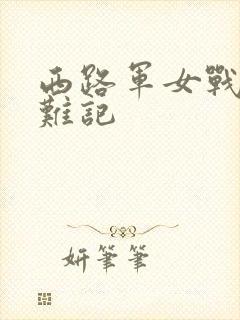 西路軍女戰
難記
妍筆筆